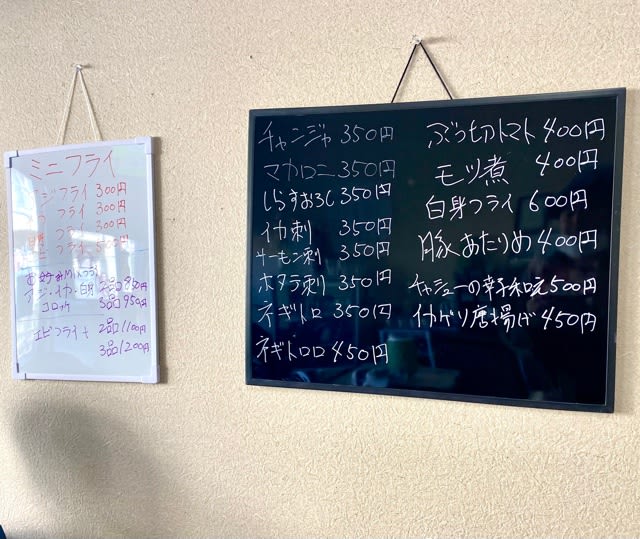 ミニフライ
アジフライ 300円
イカ フライ 300円
フライ 300円
フライ 500円
お好みMixフライ
アジ・イカ・白身 2品850円
コロッケ 3品950円
エビフライ+ 2品1100円
3品1200円
チャンジャ 350円
マカロニ 350円
しらすおろし 350円
イカ刺 350円
サーモン刺 350円
ホタテ刺 350円
ネギトロ 350円
ネギトロロ 450円
ぶつ切トマト 400円
モツ煮 400円
白身フライ 600円
豚あたりめ 400円
チャシューの辛子和え 500円
イカゲソ唐揚げ 450円